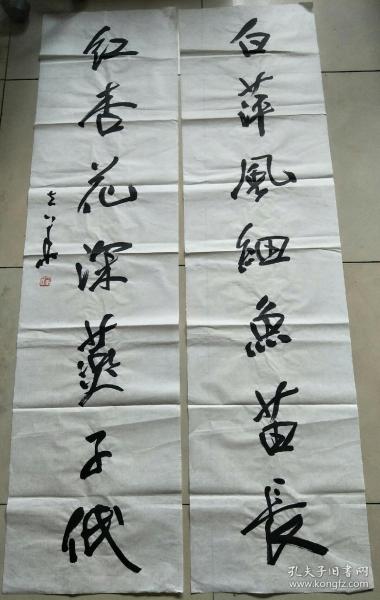 白萍風細魚苗長
紅杏花深燕子低
孔夫子旧书网
www.kongfz.com